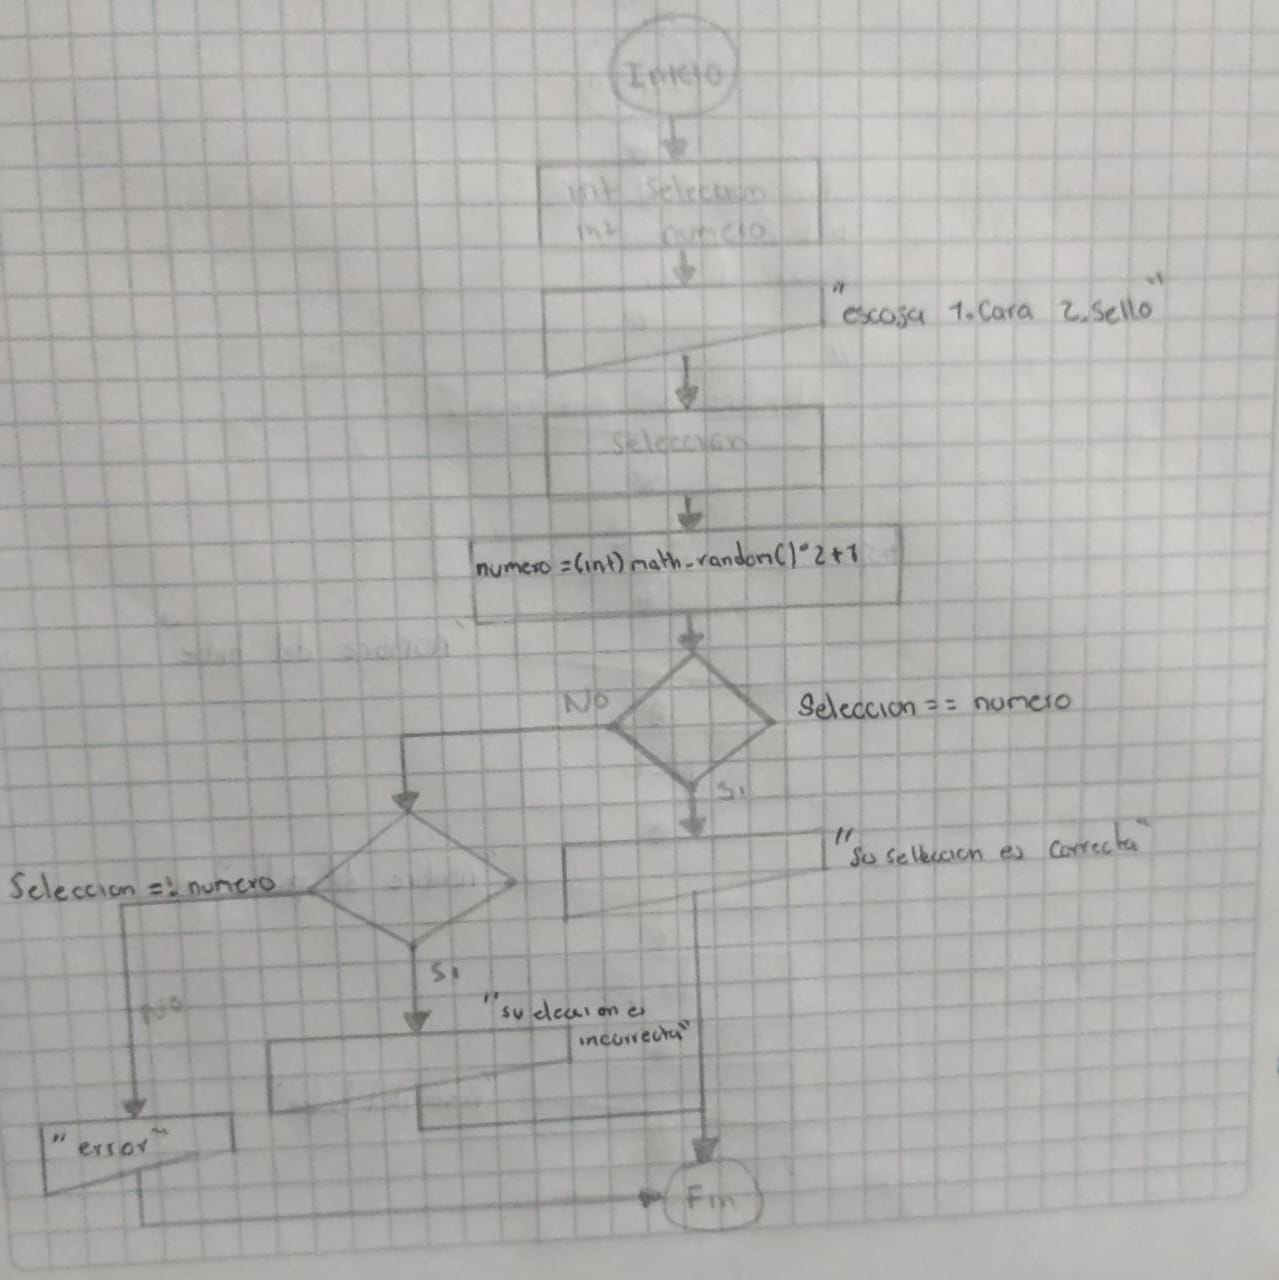 Inicio
int Seleccion
int numero
"escoja 1.Cara 2.Sello"
Seleccion
numero =(int) math-random()*2+1
Seleccion == numero
No
Si
"Su seleccion es correcta"
Seleccion =! numero
Si
No
"su eleccion es
incorrecta"
"error"
Fin